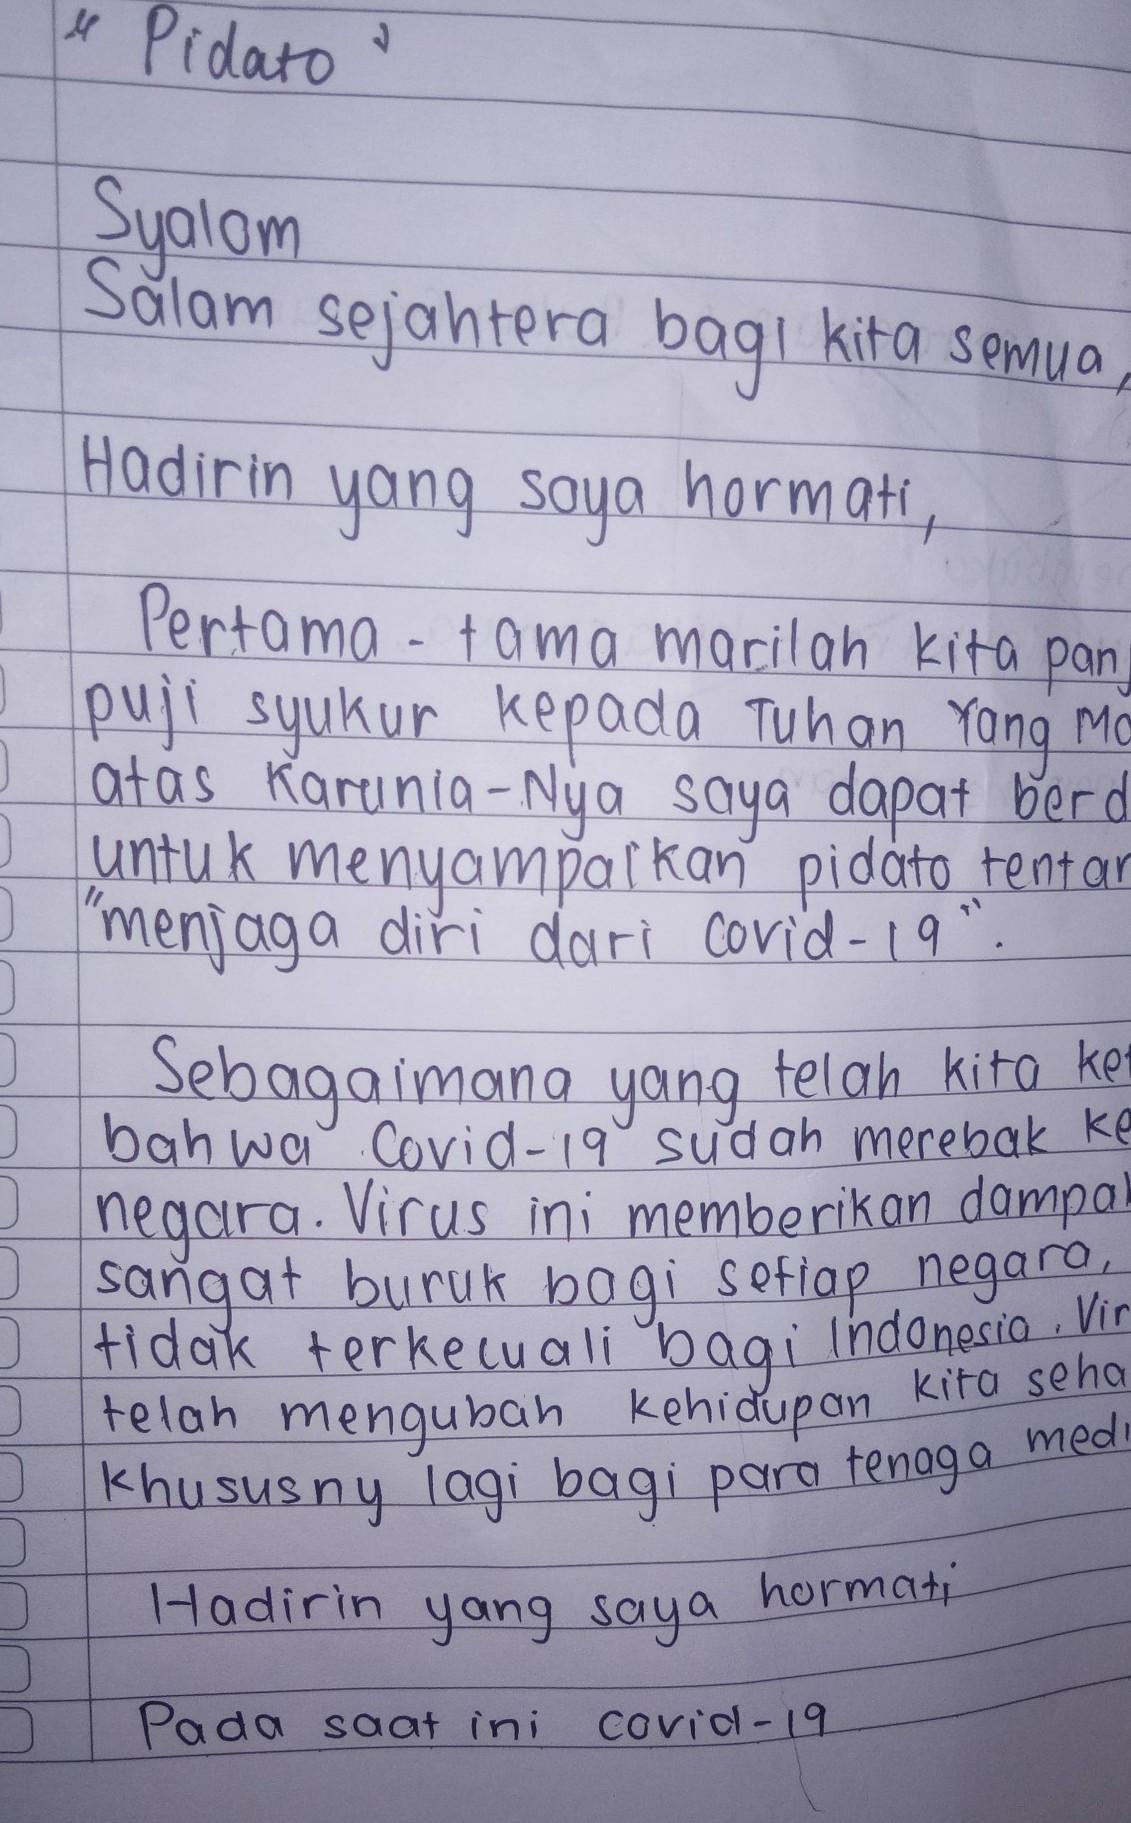 "Pidato"
Syalom
Salam sejahtera bagi kita semua,
Hadirin yang saya hormati,
Pertama - tama marilah kita panj
puji syukur kepada Tuhan Yang Ma
atas Karunia-Nya saya dapat berd
untuk menyampaikan pidato tentan
"menjaga diri dari Covid-19".
Sebagaimana yang telah kita ket
bahwa Covid-19 sudah merebak ke
negara. Virus ini memberikan dampak
sangat buruk bagi setiap negara,
tidak terkecuali bagi Indonesia. Vir
telah mengubah kehidupan kita seha
khususny lagi bagi para tenaga medi
Hadirin yang saya hormati
Pada saat ini covid-19